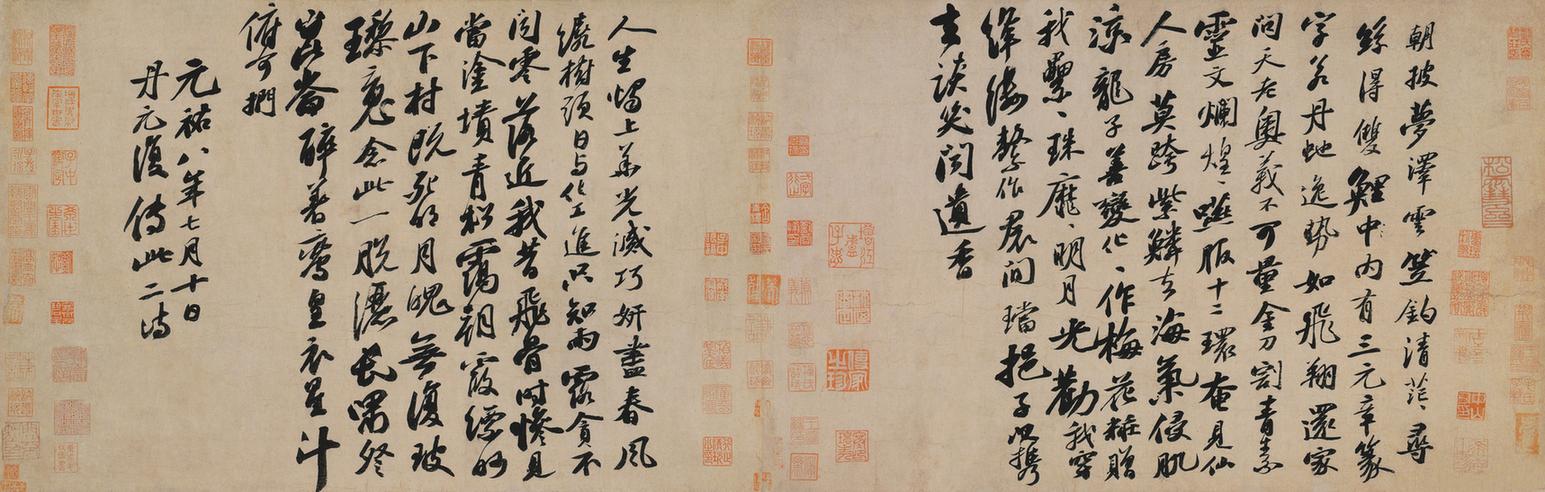 朝披夢澤雲笠釣清茫〻尋
絲得雙鯉中内有三元章篆
字若丹虵逸勢如飛翔還家
問天老奧義不可量金刀割青素
靈文爛煌〻嚥服十二環奄見仙
人房莫跨紫鱗去海氣侵肌
涼龍子善變化〻作梅花糚贈
我纍〻珠靡〻明月光勸我穿
絳縷繫作裙間璫挹子以攜
去談笑聞遺香
人生燭上華光滅巧妍盡春風
繞樹頭日與化工進只知雨露貪不
聞零落近我昔飛骨時慘見
當塗墳青松靄朝霞縹眇
山下村既死明月魄無復玻
瓈魂念此一脫灑長嘯祭
崑崙醉著鸞皇衣星斗
俯可捫
元祐八年七月十日
丹元復傳此二詩